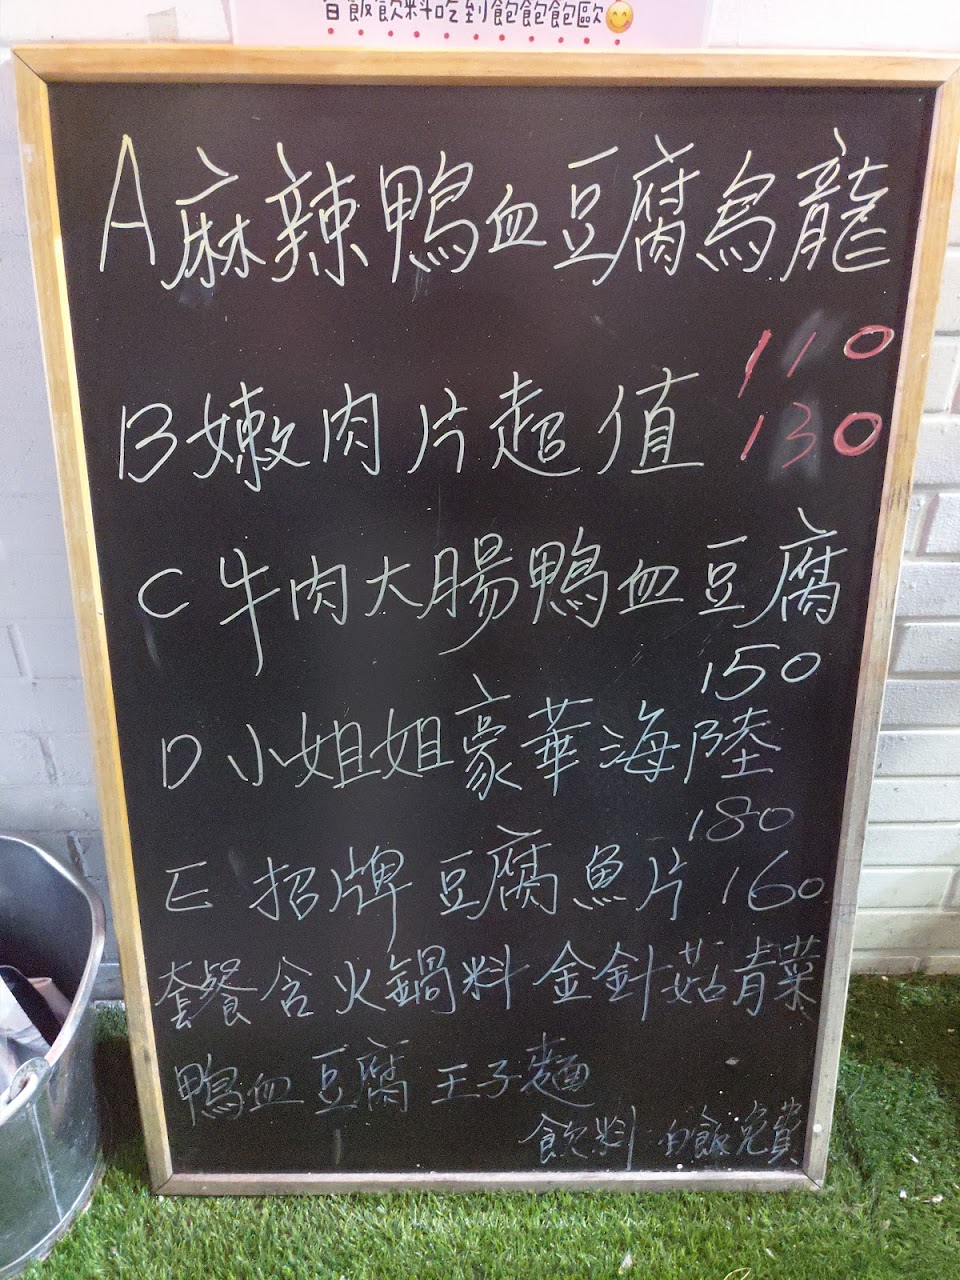 白飯飲料吃到飽飽飽歐😋
A麻辣鴨血豆腐烏龍
110
B嫩肉片超值 130
C牛肉大腸鴨血豆腐
150
D小姐姐豪華海陸
180
E招牌豆腐魚片 160
套餐含火鍋料 金針菇青菜
鴨血豆腐 王子麵
飲料 白飯免費